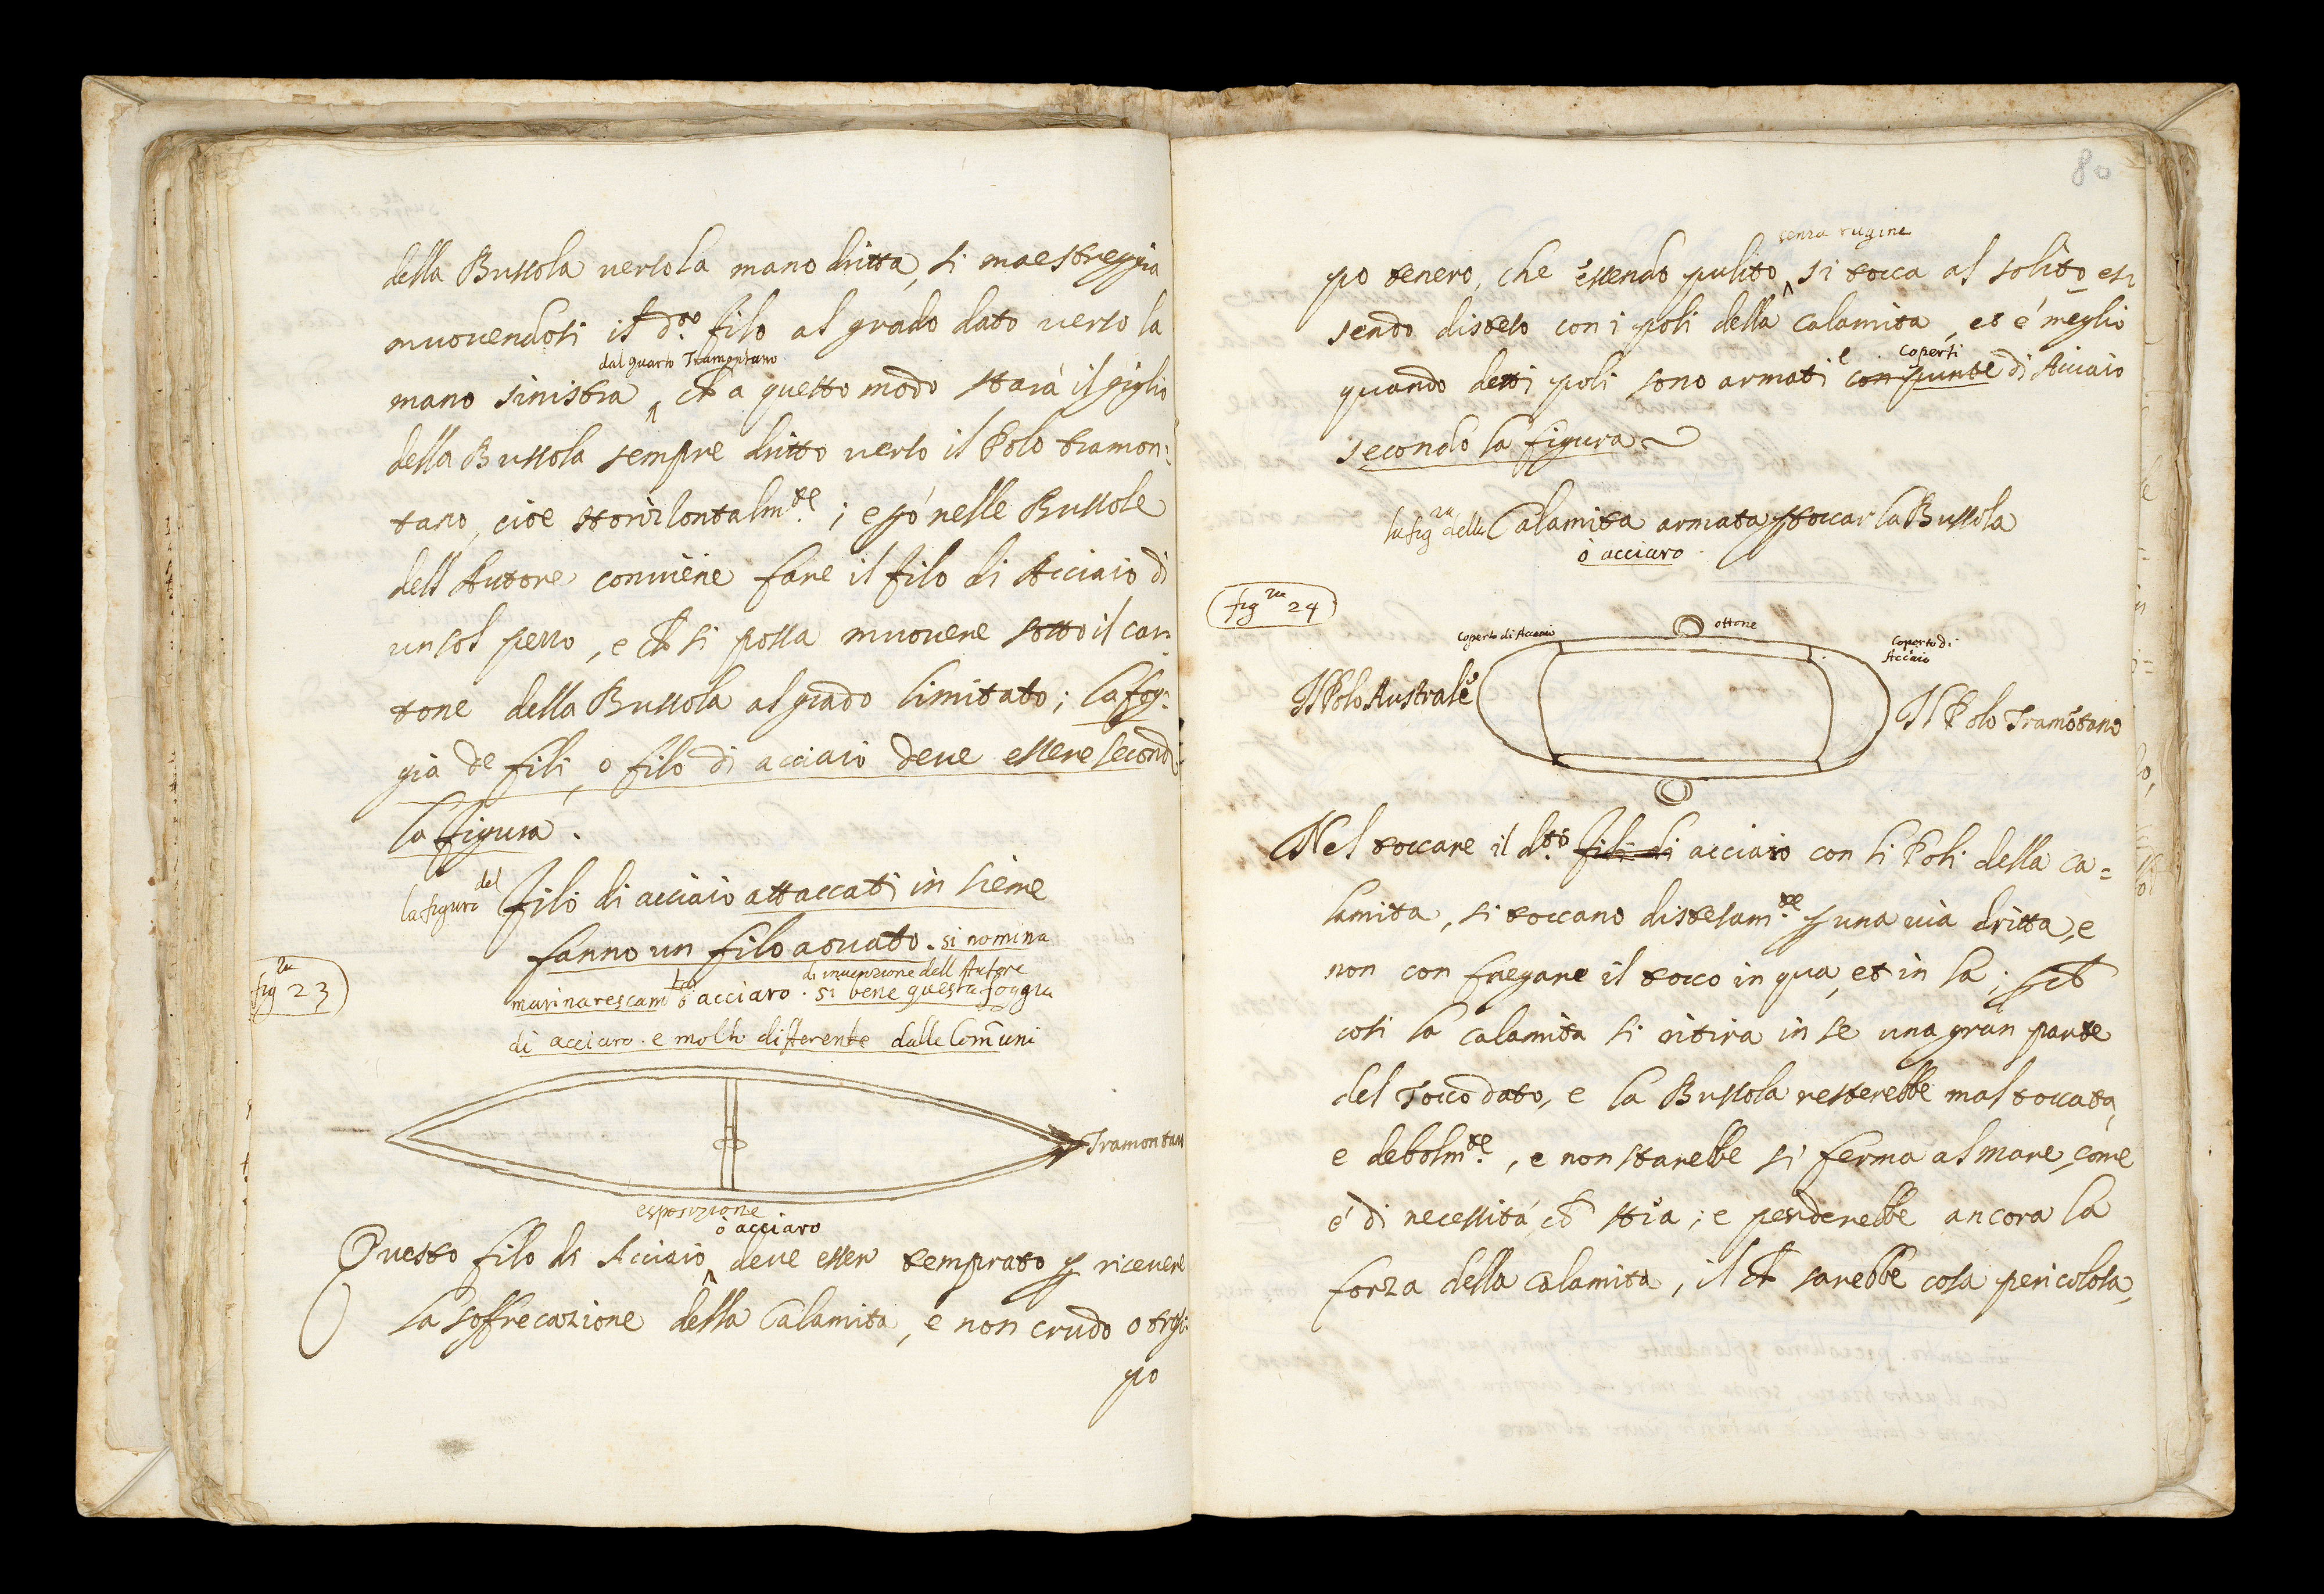 della Bussola verso la mano dritta, si maestreggia
muovendosi il d.to filo al grado dato verso la
dal quarto Tramontano
mano sinistra ^ ch a questo modo starà il giglio
della Bussola sempre dritto verso il Polo tramon:
tano, cioe Horizontalm.te; e pò nelle Bussole
dell Autore conviene fare il filo di Acciaio di
un sol pezzo, e ch si possa muovere sotto il car:
tone della Bussola al grado limitato; la fog:
gia de fili, o filo di acciaio deve essere secondo
la figura.
la figura del filo di acciaio attaccati in sieme
fanno un filo aovato. si nomina
di invenzione dell Autore
fig ra 23
marinarescam te ò acciaro. si bene questa foggia
di acciaro. e molto differente dalle Comuni
Tramontan
esposizione
ò acciaro
Questo filo di Acciaio ^ deve esser temprato p ricevere
la soffrecazione della Calamita, e non crudo o trop:
po
80
senza rugine
po tenero, che essendo pulito ^ si tocca al solito es:
sendo disteso con i poli della calamita, et é meglio
coperti
quando detti poli sono armati e con punte di Acciaio
secondo la figura
la fig ra della Calamita armata p toccar la Bussola
ò acciaro
fig ra 24
coperto di Acciaio
ottone
coperto di
Acciaio
Il Polo Australe
Il Polo Tramotano
Nel toccare il d.to fili di acciaio con li Poli della ca=
lamita, si toccano distesam.te p una via dritta, e
non con fregare il tocco in qua, et in la; p ch
cosi la calamita si ritira in se una gran parte
del Tocco dato, e la Bussola resterebbe mal toccata,
e debolm.te, e non starebbe si ferma al mare, come
é di necessitá, ch stia; e perderebbe ancora la
forza della calamita, il ch sarebbe cosa pericolosa,